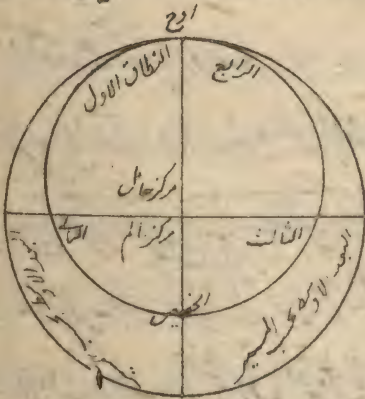 اوج
النطاق الاول
الرابع
مركز حامل
مركز العالم
الثالث
الحضيض
البعد الاوسط بحسب المسير